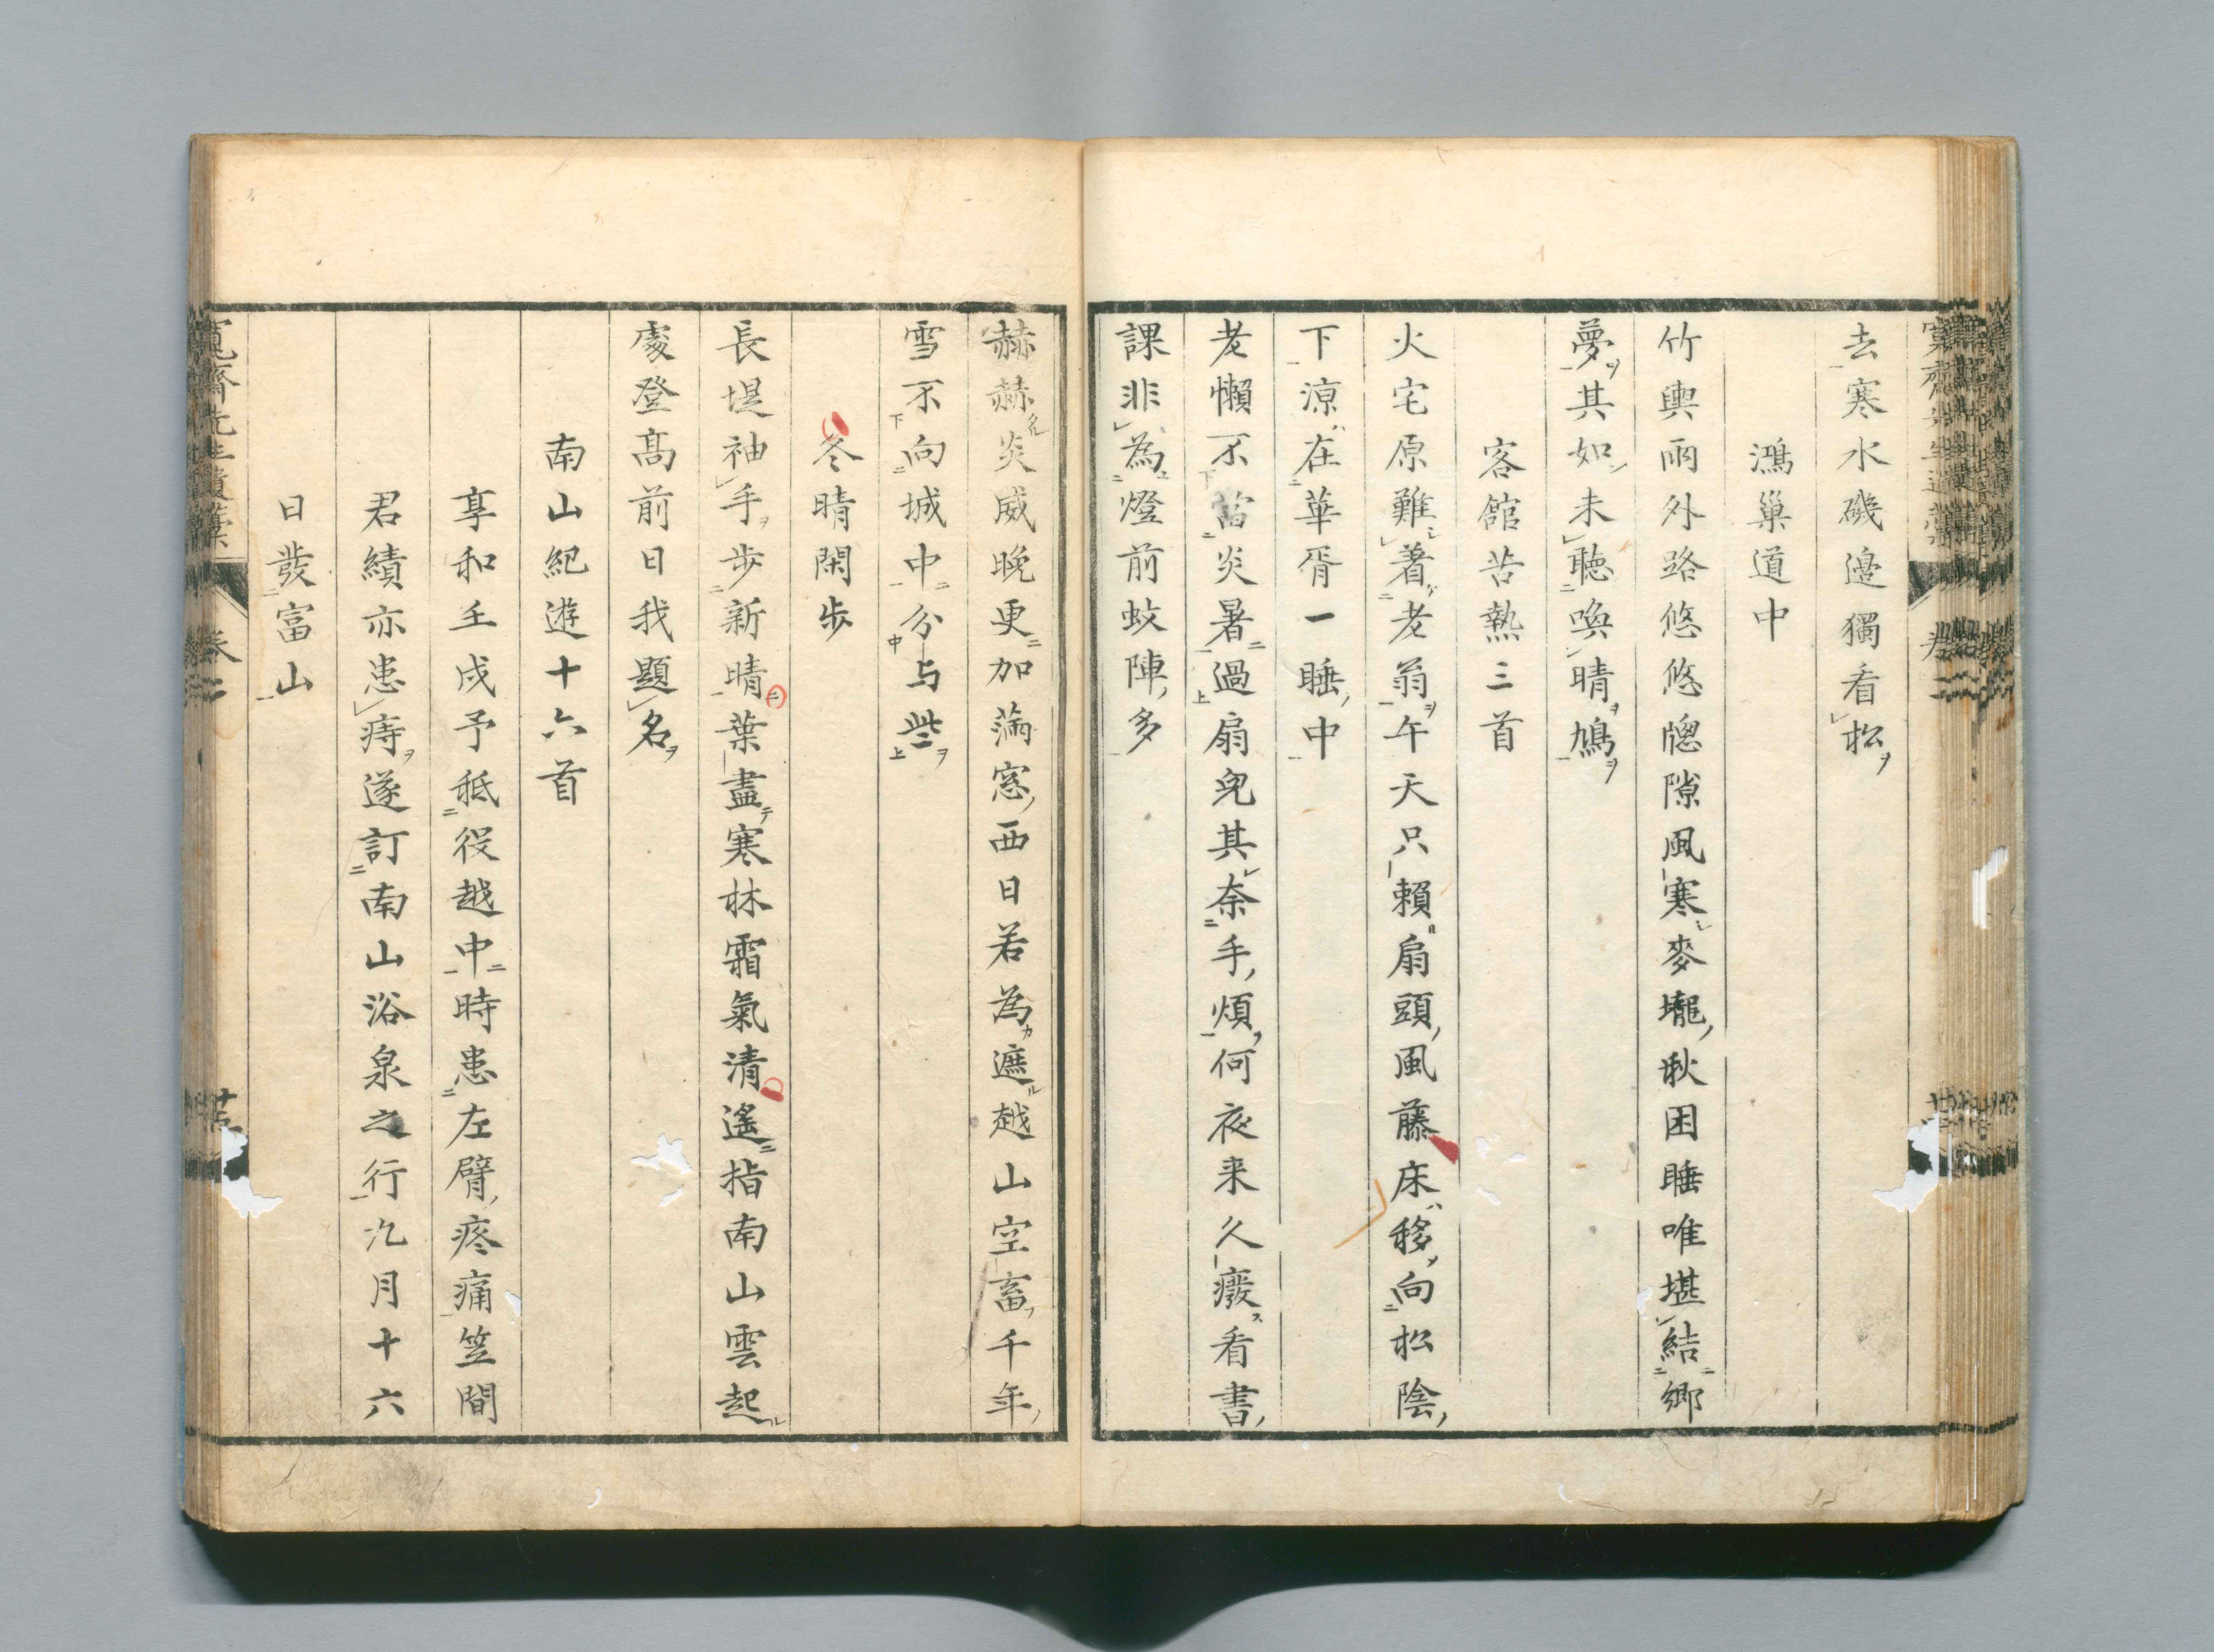 去寒水磯邊獨看松
鴻巢道中
竹輿雨外路悠悠牕隙風寒麥壠秋困睡唯堪結鄉
夢其如未聽喚晴鳩
客館苦熱三首
火宅原難著老翁午天只賴扇頭風藤床移向松陰
下涼在華胥一睡中
老懶不當炎暑過扇兒其奈手煩何夜来久癈看書
課非為燈前蚊陣多
赫赫炎威晚更加滿窓西日若為遮越山空畜千年
雪不向城中分与些
冬晴閑步
長堤袖手步新晴葉盡寒林霜氣清遙指南山雲起
處登高前日我題名
南山紀遊十六首
享和壬戌予秪役越中時患左臂疼痛笠間
君績亦患痔遂訂南山浴泉之行九月十六
日發富山
寬齋先生遺藁
卷二